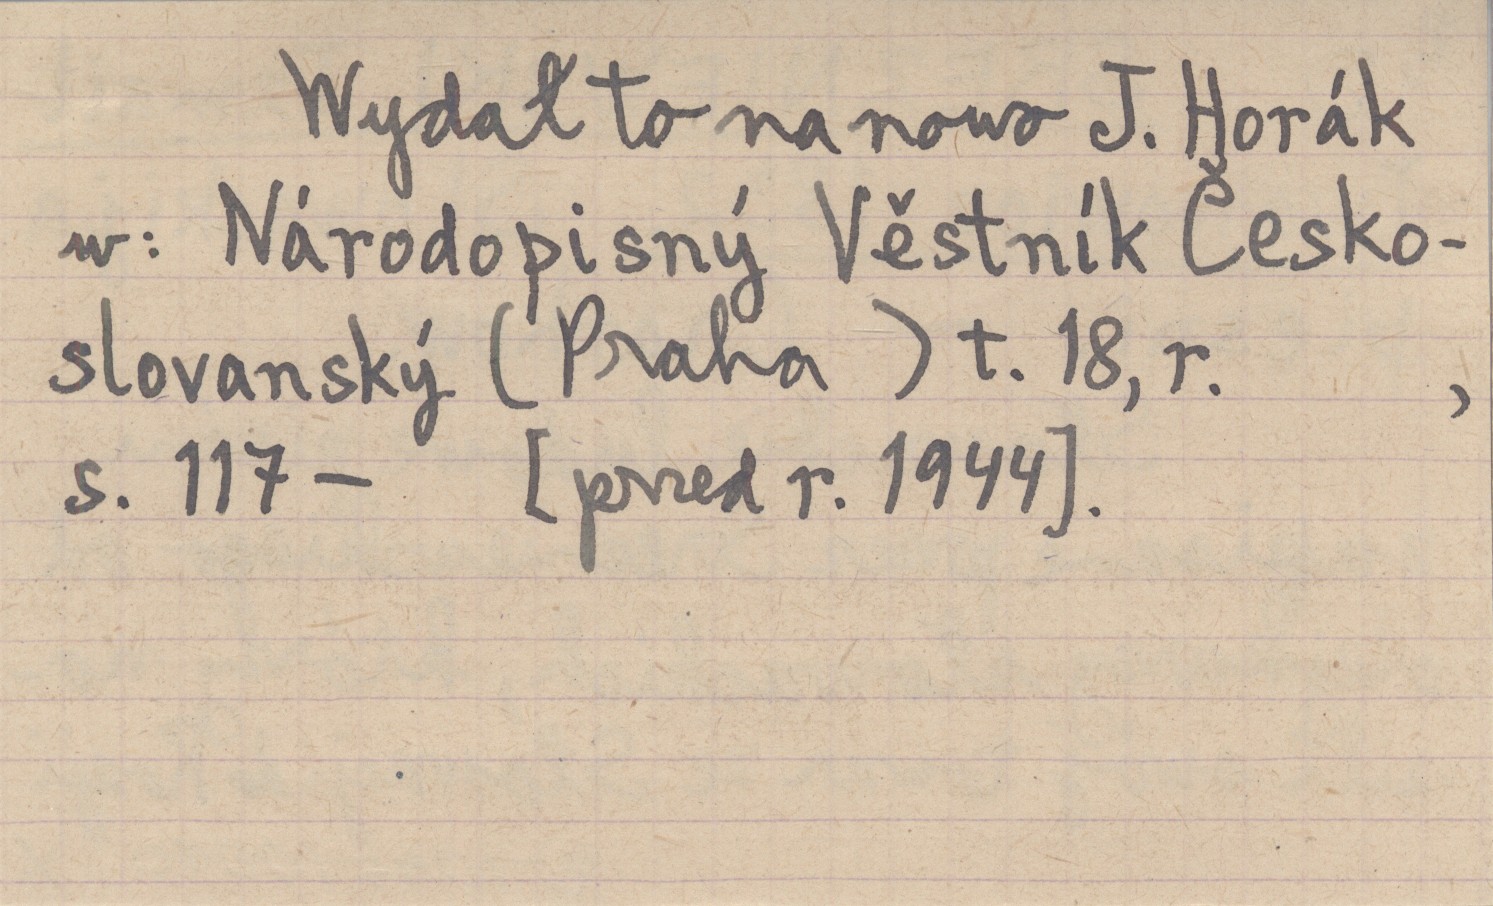 Wydał to na nowo J. Horák
w: Národopisný Věstník Česko-
slovanský (Praha ) t. 18, r. ,
s. 117 – [przed r. 1944].